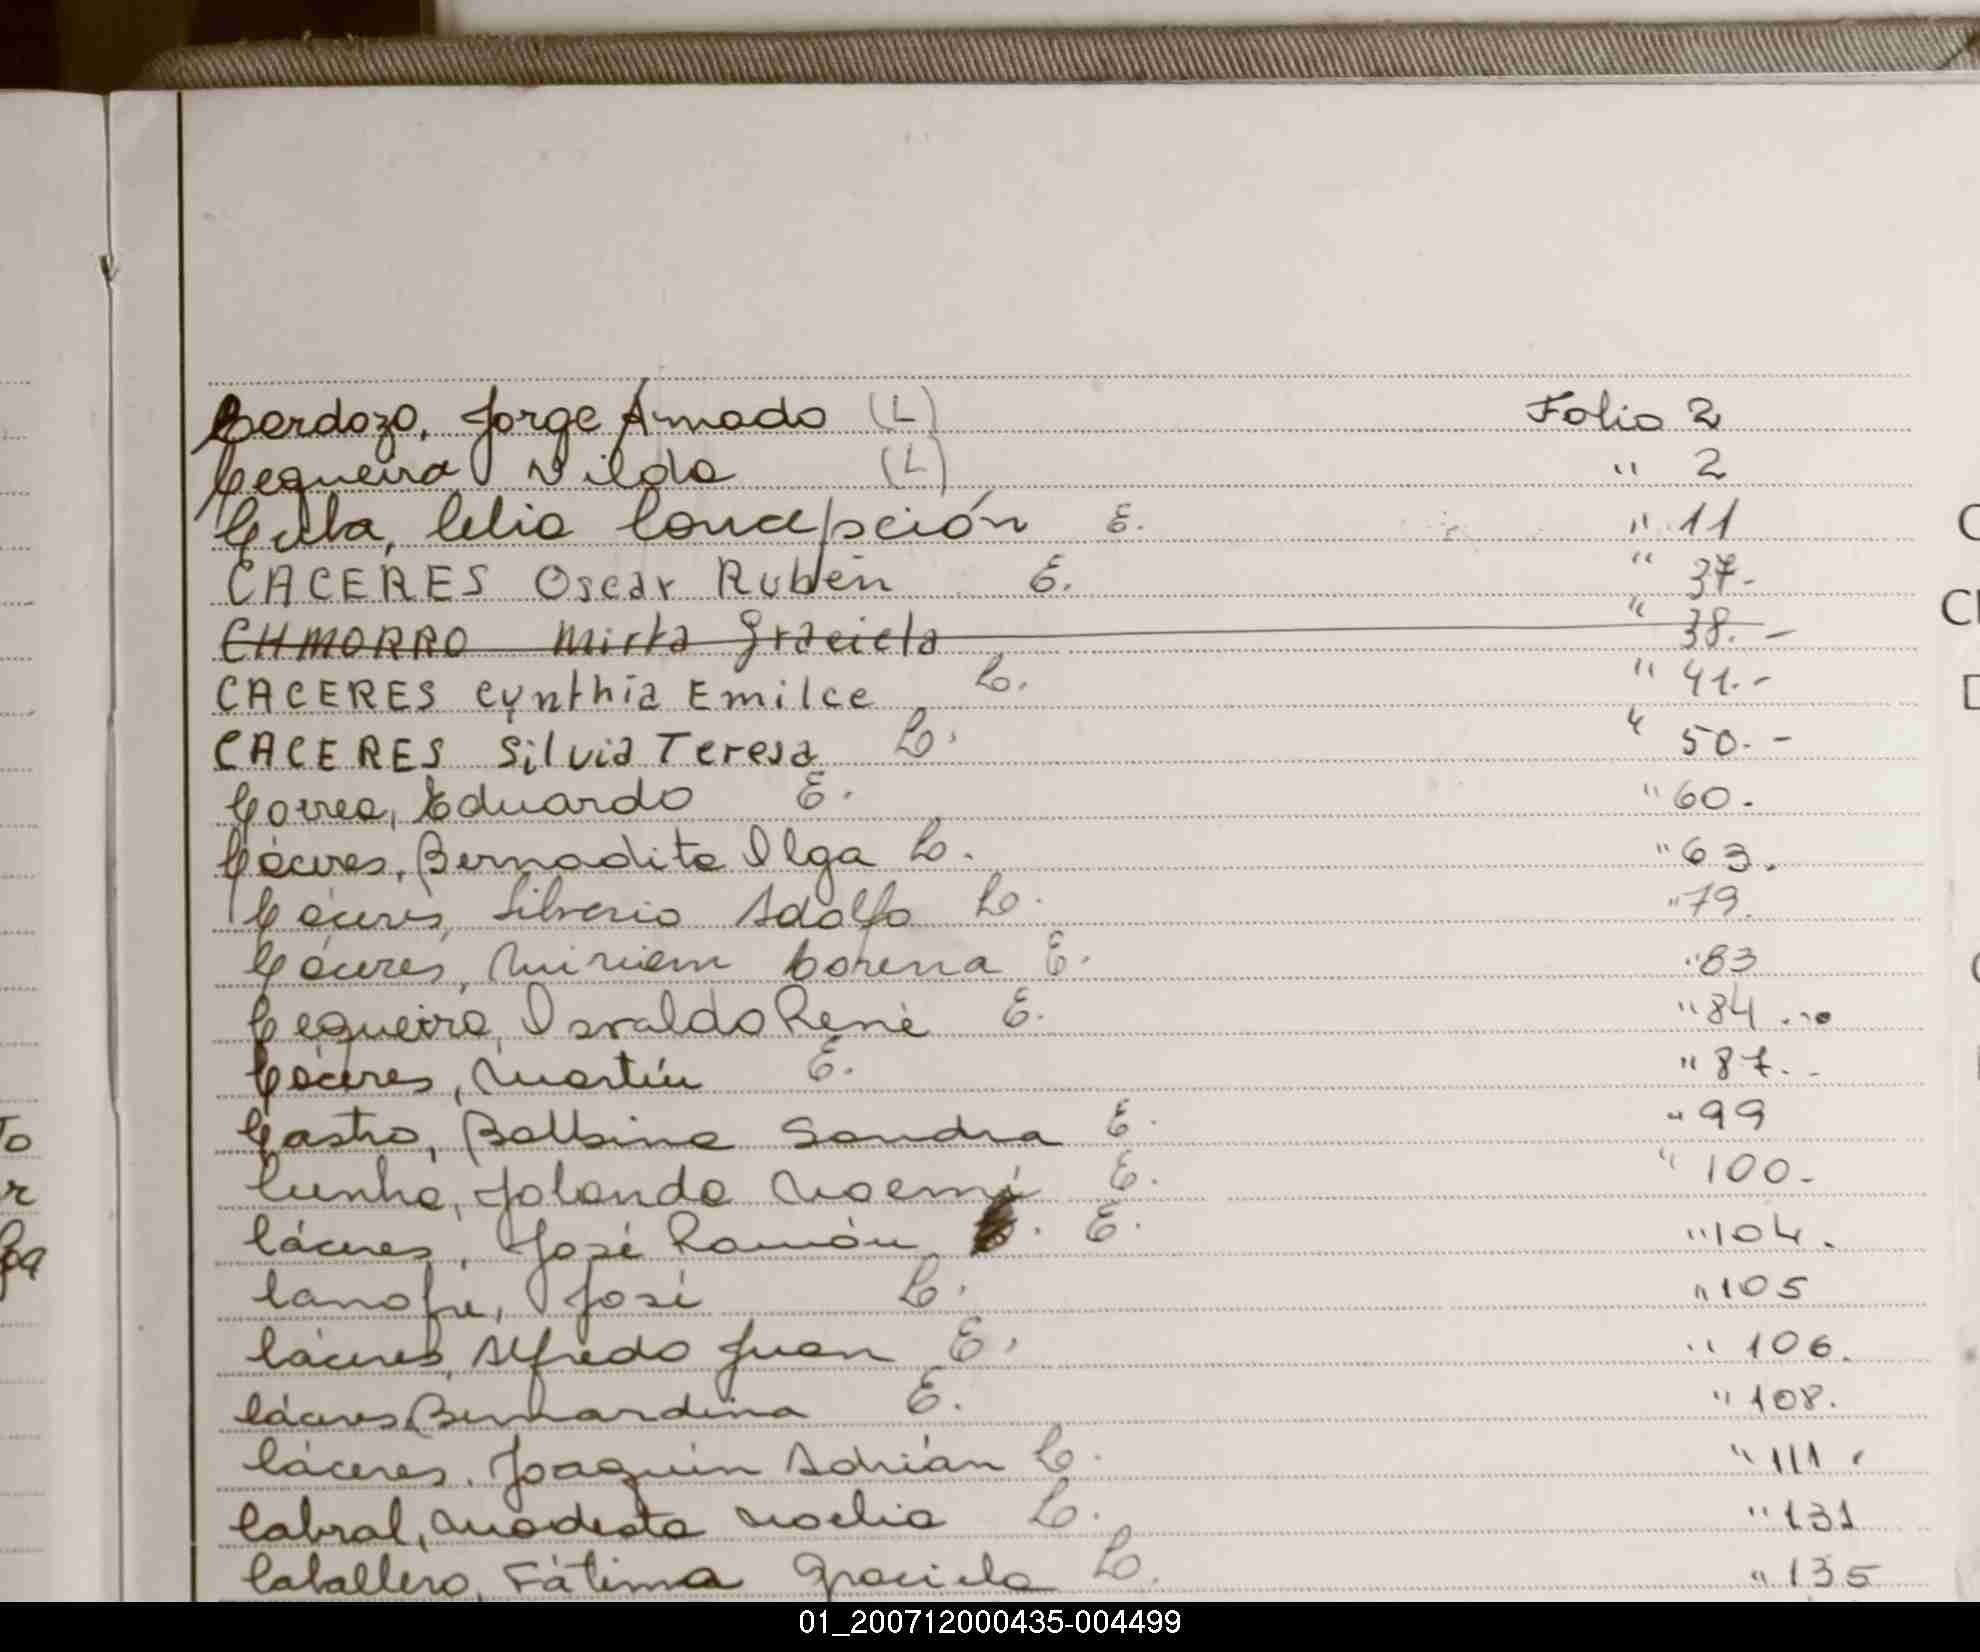 Cardozo, Jorge Amado (L) Folio 2
Cequeira Nilda (L) " 2
Celia Concepción E. " 11
CACERES Oscar Rubén E. " 37.-
CHMORRO Mirta Graciela " 38.-
CACERES Cynthia Emilce L. " 41.-
CACERES Silvia Teresa L. " 50.-
Correa, Eduardo E. " 60.
Cáceres, Bernadita Ilga L. " 63.
Cáceres, Silverio Adolfo L. " 79.
Cáceres, Miriam Lorena E. " 83
Cequeira, Osvaldo René E. " 84.
Cáceres, Martín E. " 87.
Castro, Balbina Sandra E. " 99
Cunha, Jolanda Noemí E. " 100.
Cáceres, José Ramón E. " 104.
José L. " 105
Cáceres, Alfredo Juan E. " 106.
Cáceres, Bernardina E. " 108.
Cáceres, Joaquín Adrián L. " 111.
Cabral, Modesta Noelia L. " 131
Caballero, Fátima Graciela L. " 135
01_200712000435-004499